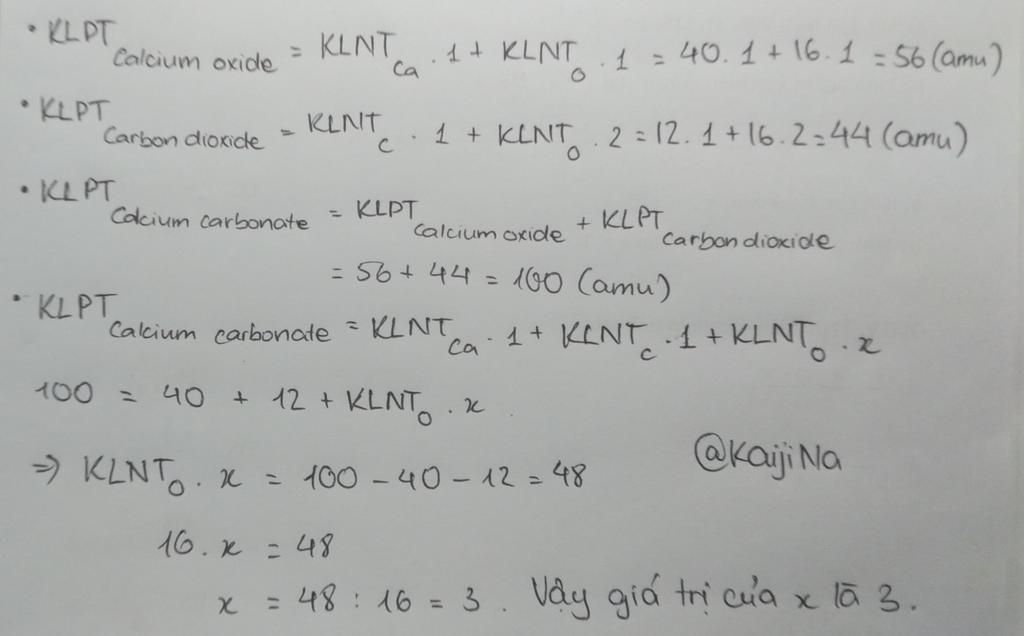 • KLPT Calcium oxide = KLNT Ca . 1 + KLNT O . 1 = 40. 1 + 16. 1 = 56 (amu)
• KLPT Carbon dioxide = KLNT C . 1 + KLNT O . 2 = 12. 1 + 16. 2 = 44 (amu)
• KLPT Calcium carbonate = KLPT Calcium oxide + KLPT carbon dioxide
= 56 + 44 = 100 (amu)
• KLPT Calcium carbonate = KLNT Ca . 1 + KLNT C . 1 + KLNT O . x
100 = 40 + 12 + KLNT O . x
⇒ KLNT O . x = 100 - 40 - 12 = 48
@KaijiNa
16. x = 48
x = 48 : 16 = 3 . Vậy giá trị của x là 3.